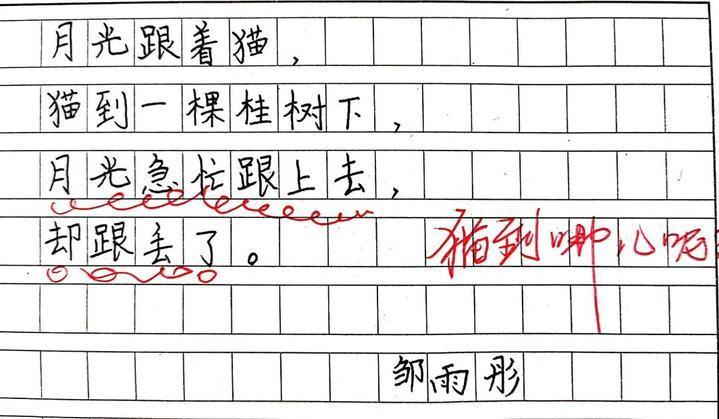 月光跟着猫，
猫到一棵桂树下，
月光急忙跟上去，
却跟丢了。
猫到哪儿呢
邹雨彤